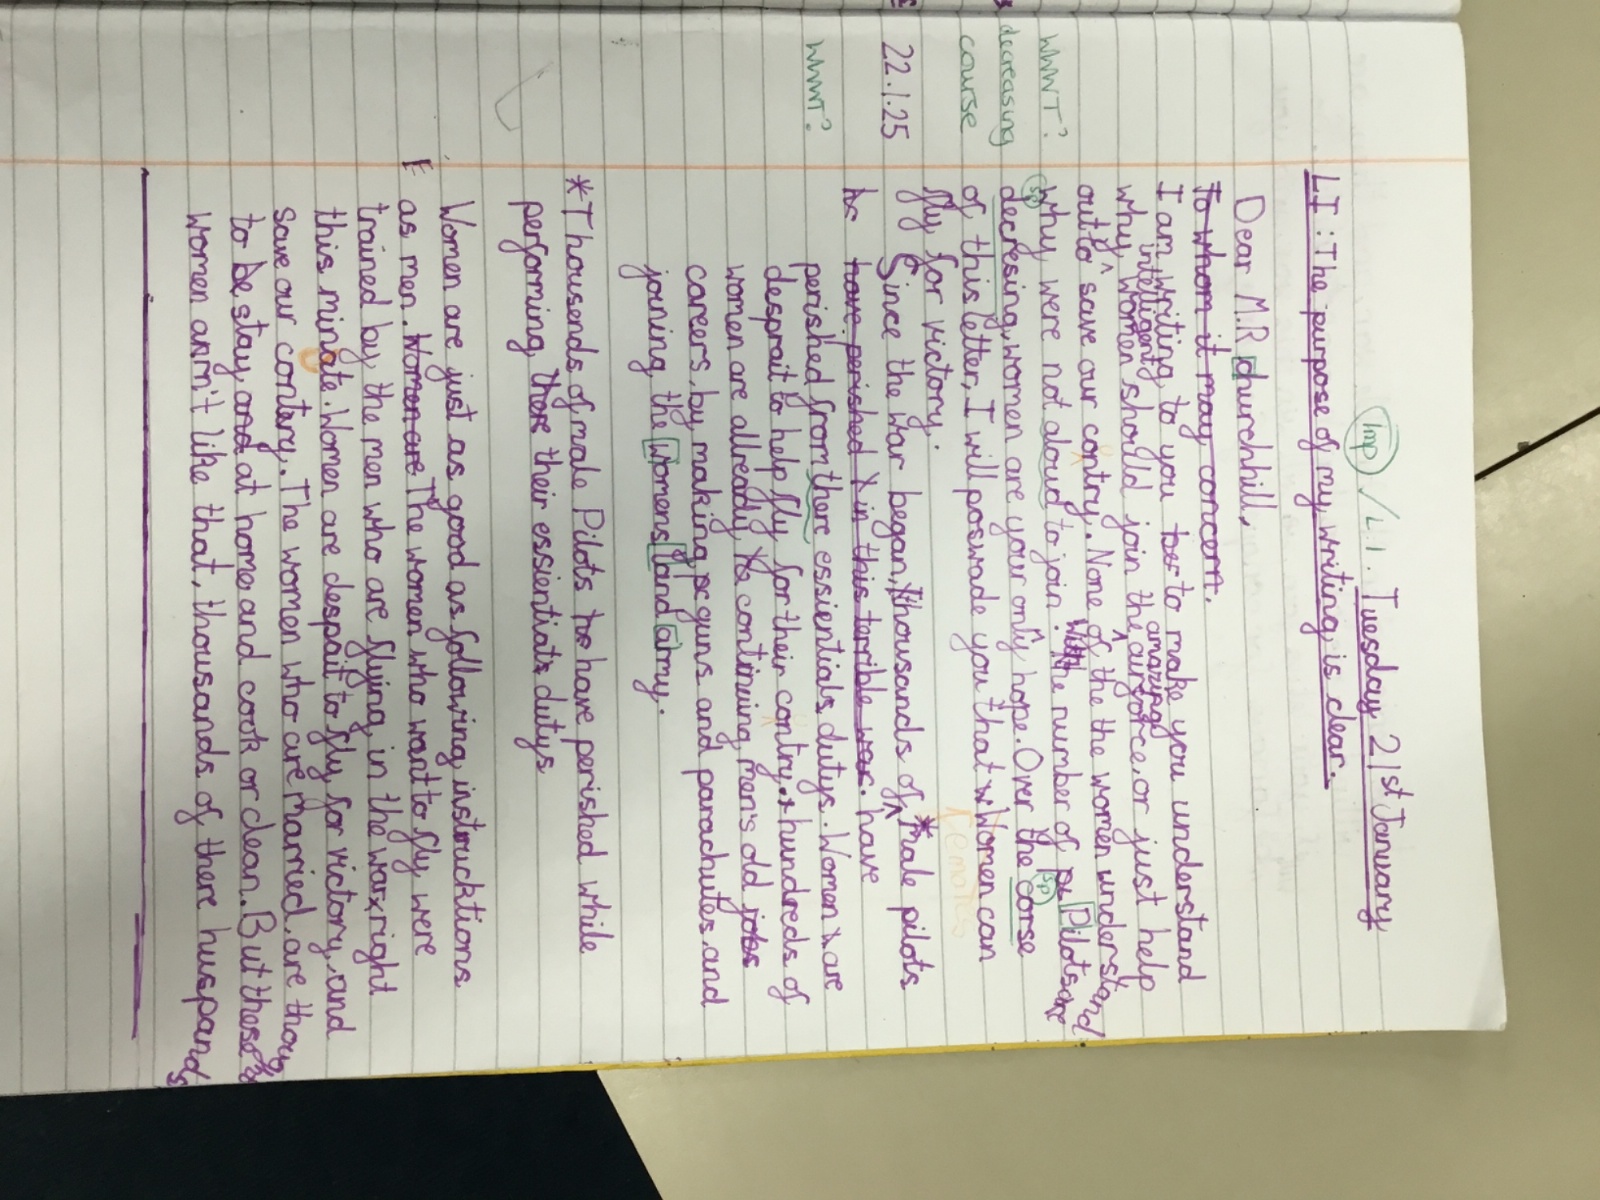 Imp / L.I. Tuesday 21st January
LI: The purpose of my writing is clear.
Dear M.R churchhill,
To whom it may concern.
I am writing to you to make you understand
intelligent amazing
why women should join the airforce, or just help
out to save our contry. None of the the women understand
WWWT?
why were not aloud to join. With the number of Pilots are
sp
decreasing
decresing, women are your only hope. Over the corse
sp
course
of this letter, I will poswade you that Women can
females
fly for victory.
22.1.25
Since the war began, thousands of *male pilots
have perished in this terrible war. have
WWWT?
perished from there essientials dutys. Women are
desprait to help fly for their contry. hundreds of
women are allready continuing men's old jobs
careers by making guns and parachutes and
joining the Womens land army.
*Thousends of male Pilots have perished while
performing there their essientials dutys
Women are just as good as following instrucktions
E
as men. Women are The women who want to fly were
trained by the men who are flying in the war right
this minate. Women are despait to fly for victory and
save our contery. The women who are married are thoug
to be stay and at home and cook or clean. But these
women arn't like that, thousands of there huspands